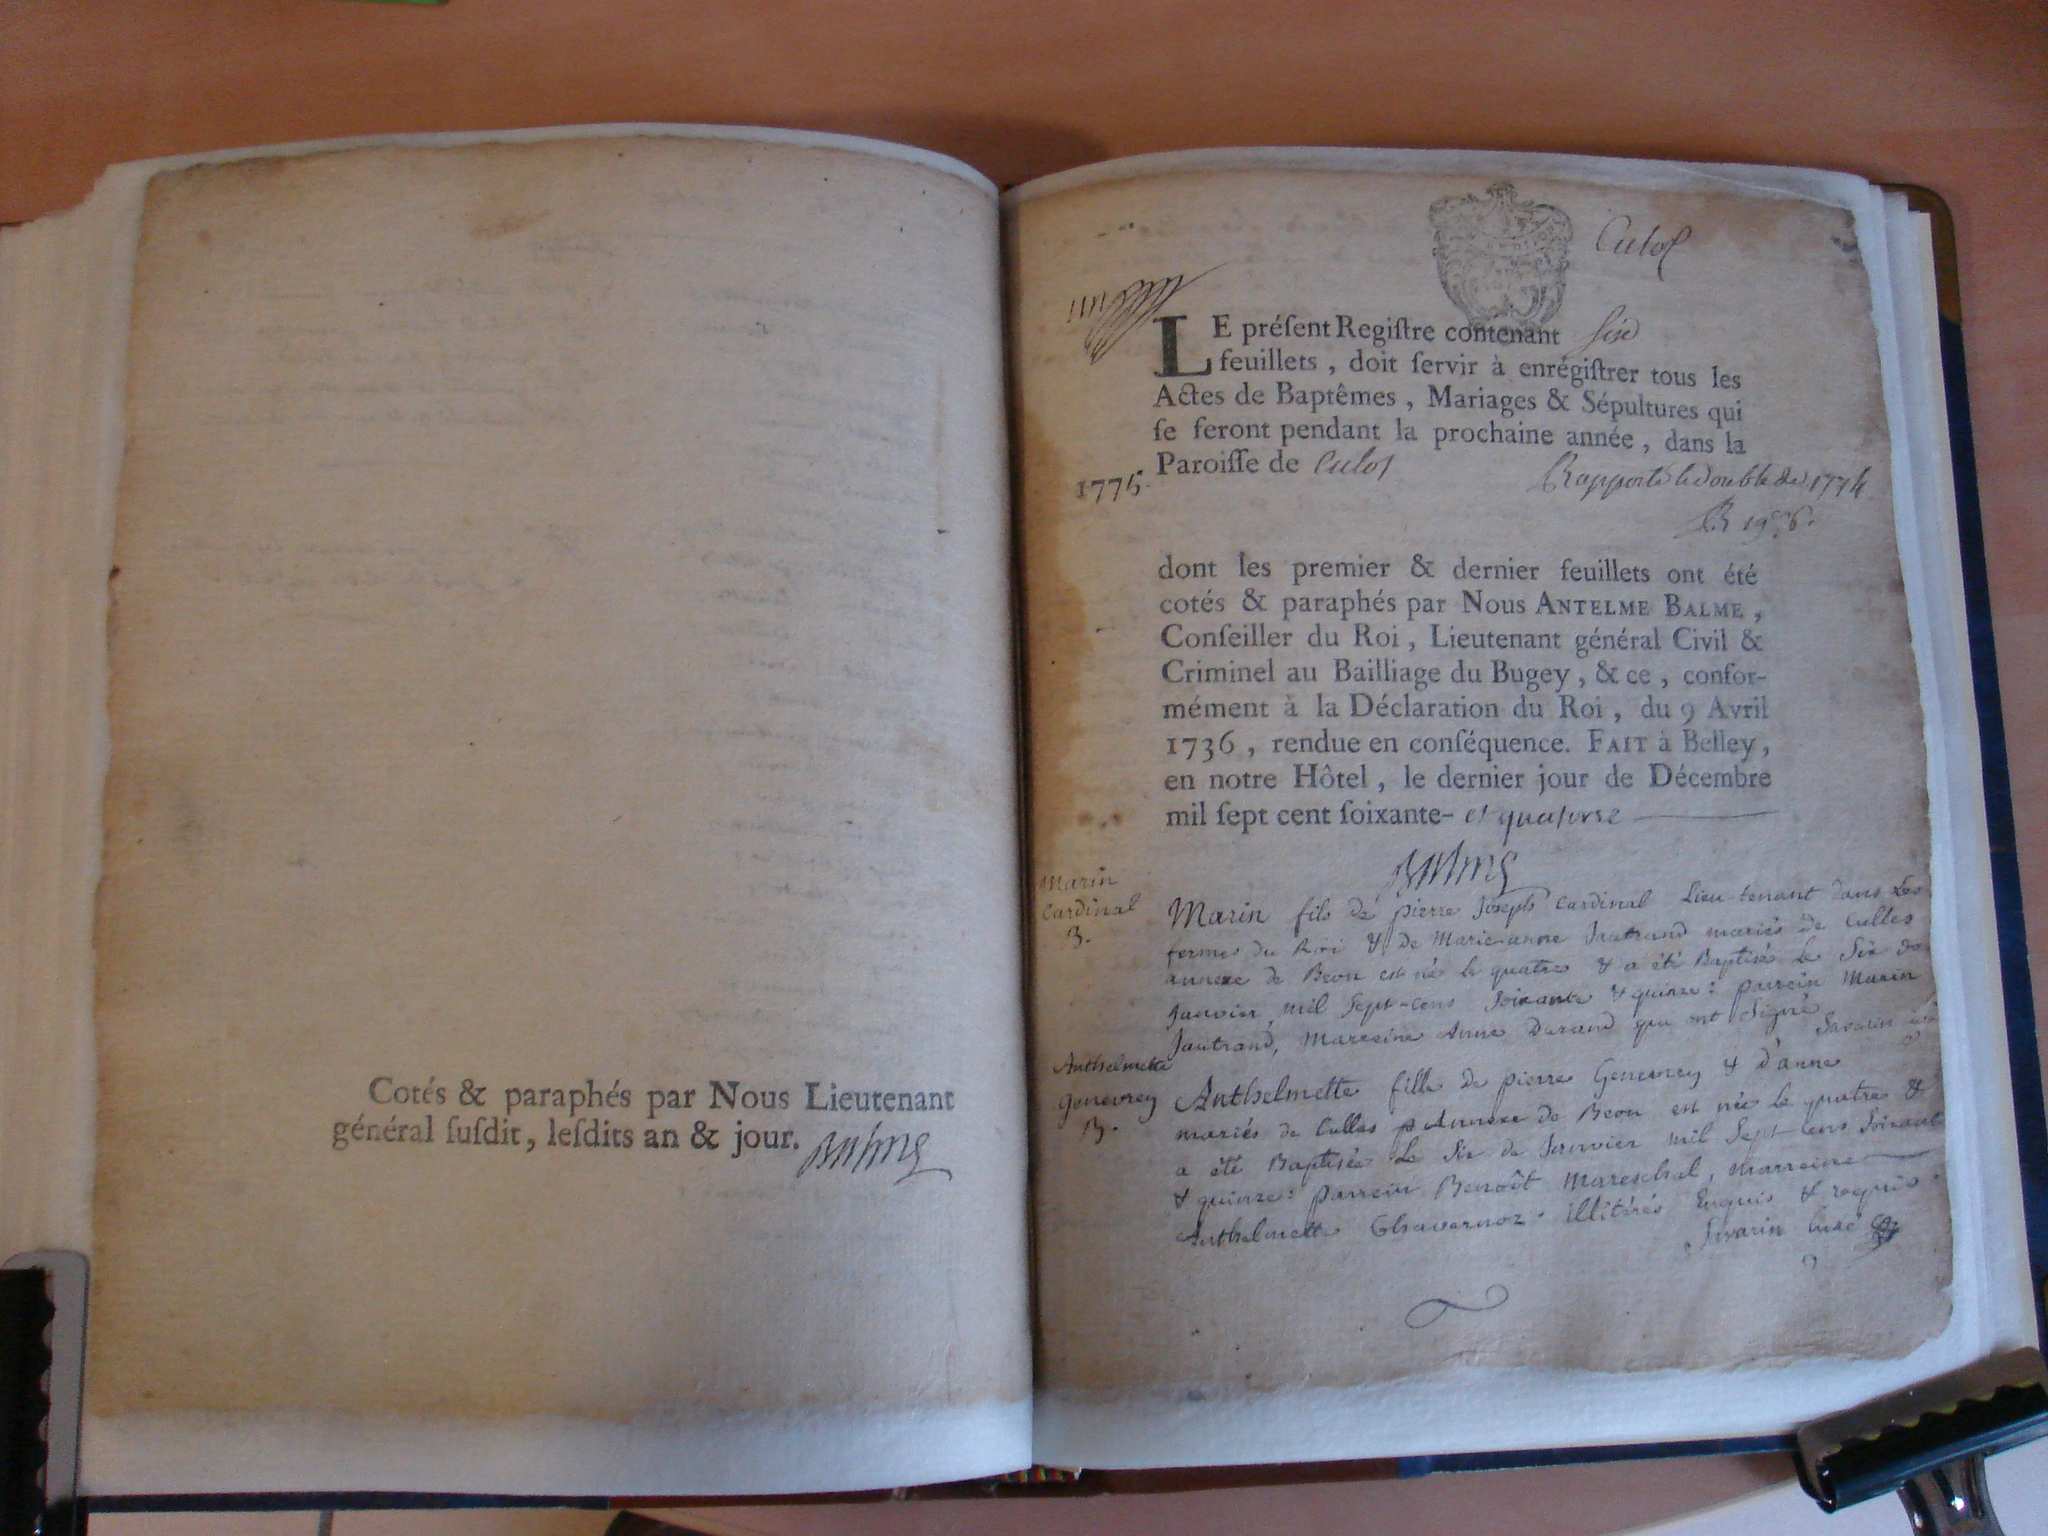 Cotés & paraphés par Nous Lieutenant
général ſuſdit, leſdits an & jour. Balme
Culoz
LE préſent Regiſtre contenant six
feuillets, doit ſervir à enrégiſtrer tous les
Actes de Baptêmes, Mariages & Sépultures qui
ſe feront pendant la prochaine année, dans la
Paroiſſe de Culoz
1775.
Rapporté le double de 1774
dont les premier & dernier feuillets ont été
cotés & paraphés par Nous ANTELME BALME,
Conſeiller du Roi, Lieutenant général Civil &
Criminel au Bailliage du Bugey, & ce, confor-
mément à la Déclaration du Roi, du 9 Avril
1736, rendue en conſéquence. FAIT à Belley,
en notre Hôtel, le dernier jour de Décembre
mil ſept cent ſoixante- et quatorse
Balme
Marin
Cardinal
B.
Marin fils de pierre Joseph Cardinal Lieu-tenant dans Les
fermes du Roi & de Marie anne Jautrand mariés de Culles
annexe de Beon est né le quatre & a été Baptisé le Six de
Janvier mil Sept-cens Soixante & quinze: parrein Marin
Jautrand, Mareine Anne Durand qui ont Signé
Savarin
Anthelmette
Genevrey
B.
Anthelmette fille de pierre Genevrey & d'anne
mariés de Culles annexe de Beon est née le quatre &
a été Baptisée Le Six de Janvier mil Sept-cens Soixante
& quinze: parrein Benoît Mareschal, marreine
Anthelmette Chavarnoz. illitérés Enquis & requis.
Savarin Curé